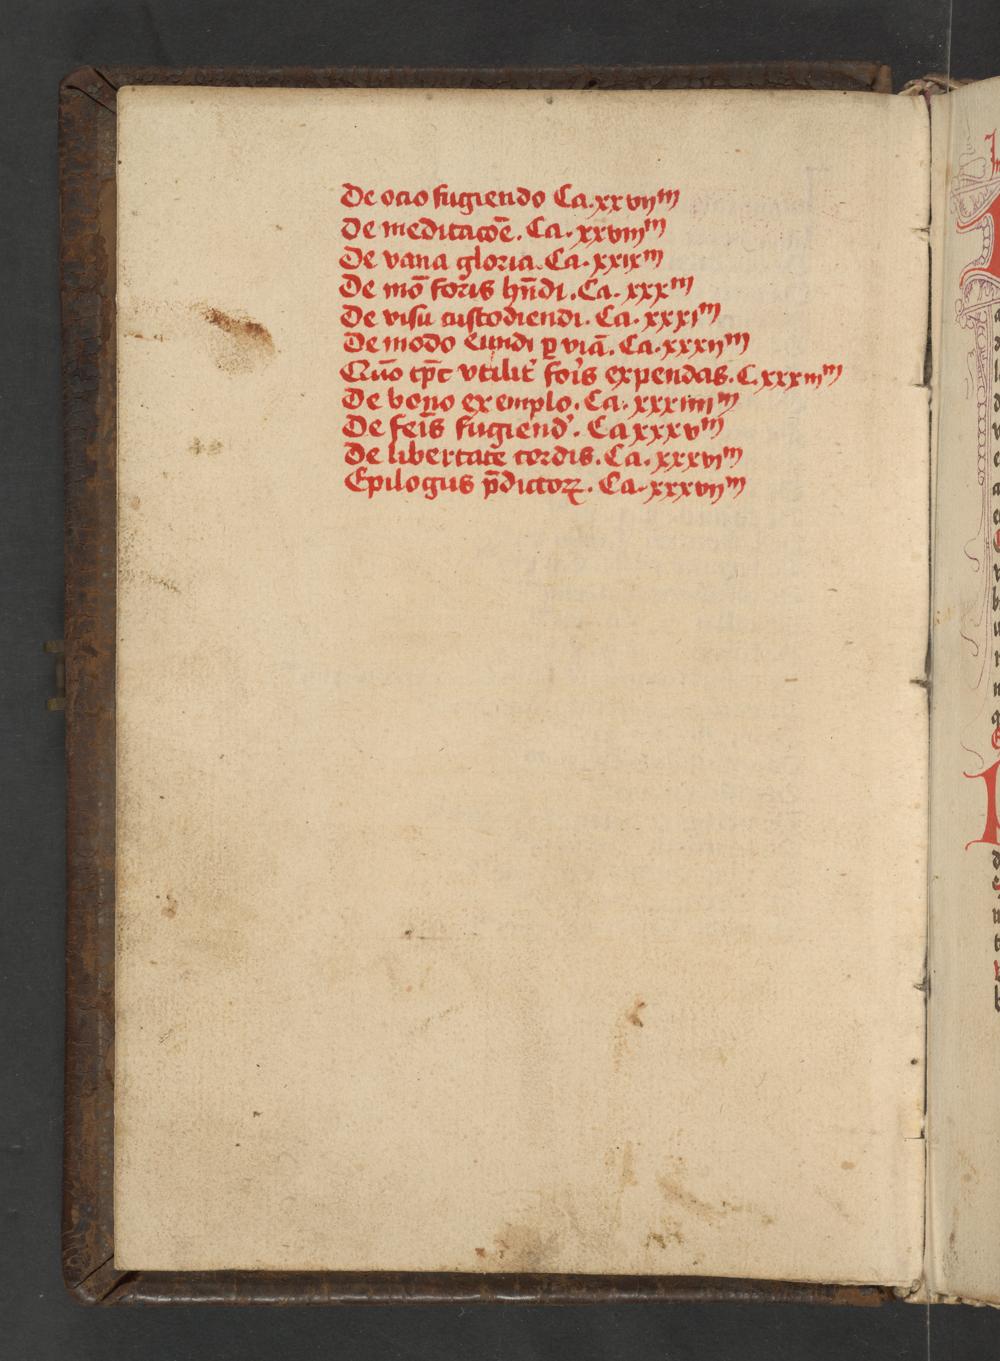 De ocio fugiendo Ca. xxvijᵐ
De meditacōe. Ca. xxviijᵐ
De vana gloria. Ca. xxixᵐ
De mō foris hn̄di. Ca. xxxᵐ
De visu custodiendi. Ca. xxxiᵐ
De modo eundi ꝑ viā. Ca. xxxijᵐ
tp̄c vtilit' foris expendas. C. xxxiijᵐ
De bono exemplo. Ca. xxxiiijᵐ
De fugiend'. Ca xxxvᵐ
De libertate cordis. Ca. xxxviᵐ
Epilogus p̄dictoꝝ. Ca. xxxvijᵐ